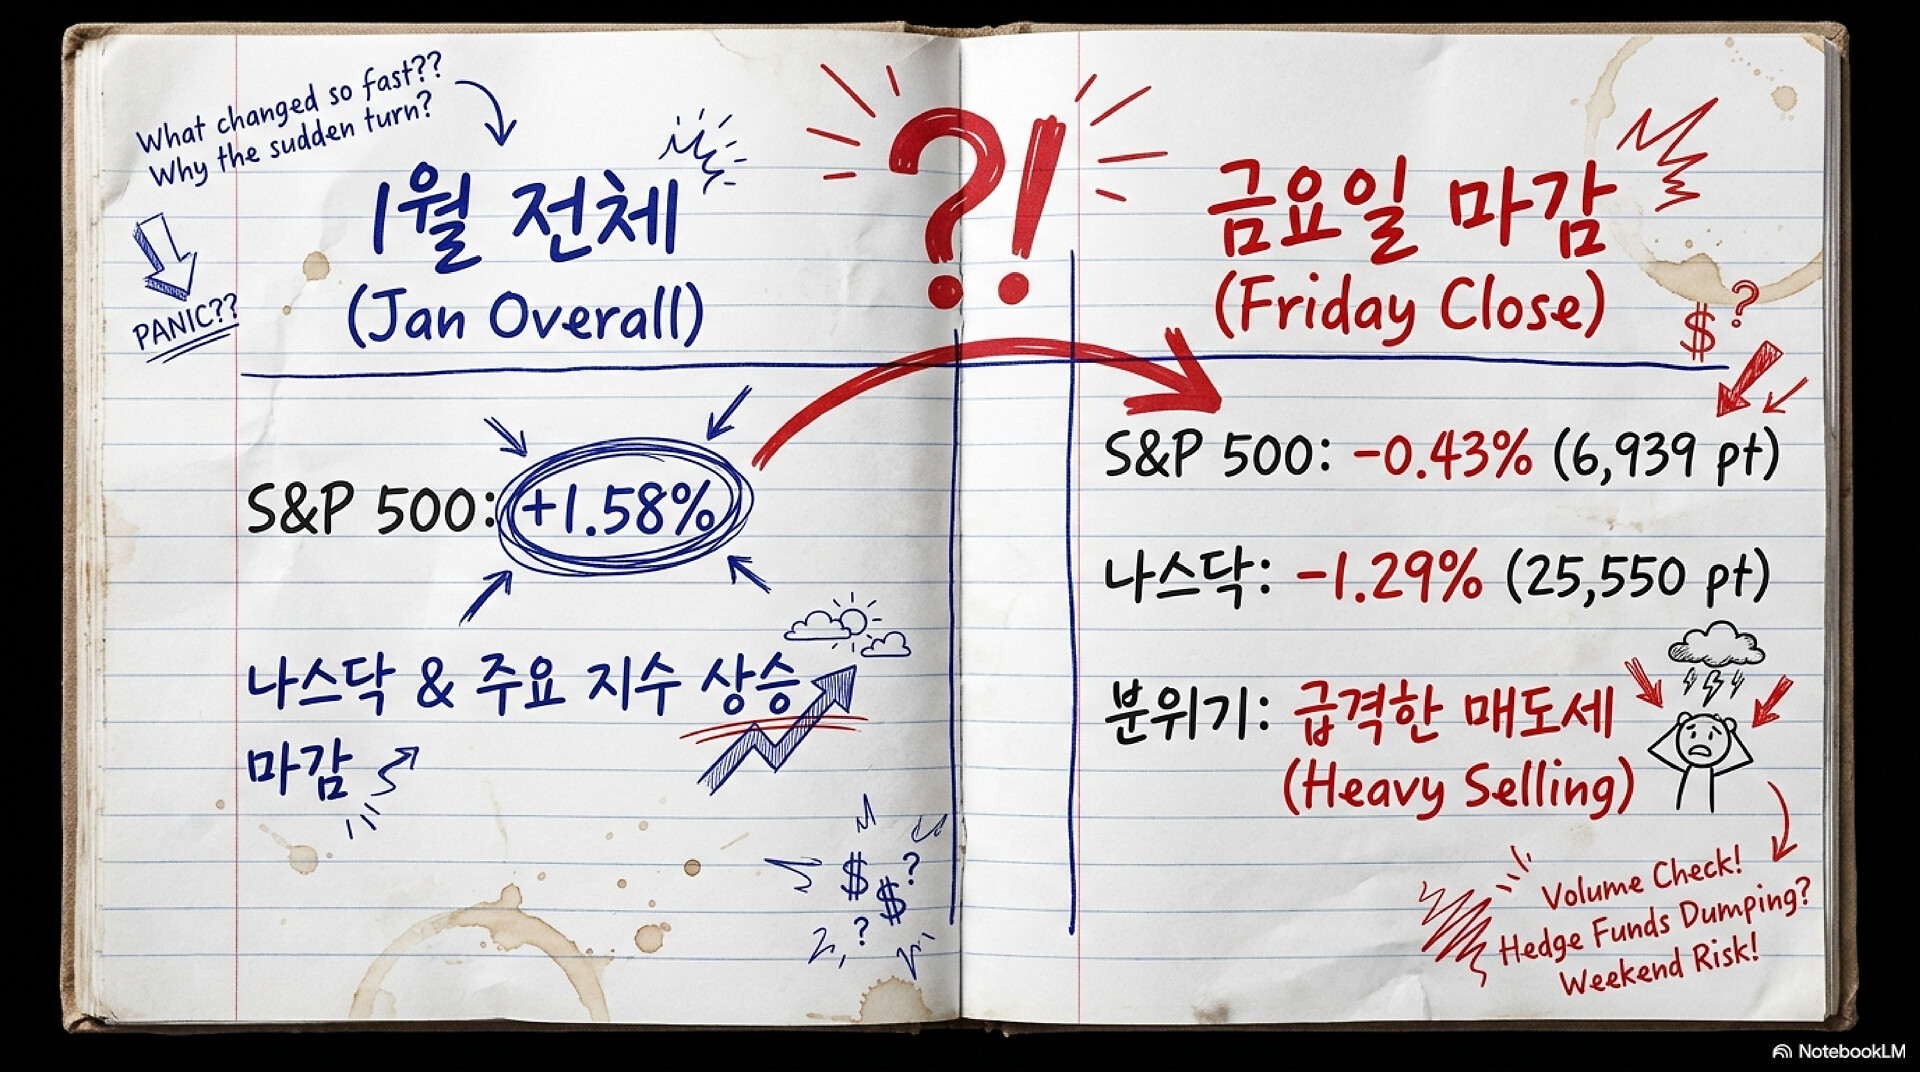 What changed so fast??
Why the sudden turn?
PANIC??
1월 전체
(Jan Overall)
S&P 500: +1.58%
나스닥 & 주요 지수 상승
마감
$ $ ? ?
?!
금요일 마감
(Friday Close)
$?
S&P 500: -0.43% (6,939 pt)
나스닥: -1.29% (25,550 pt)
분위기: 급격한 매도세
(Heavy Selling)
Volume Check!
Hedge Funds Dumping?
Weekend Risk!
NotebookLM